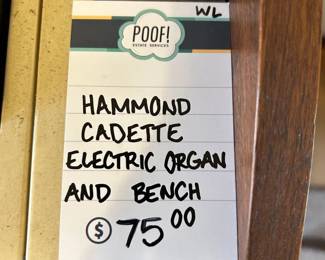 WL
POOF!
ESTATE SERVICES
HAMMOND
CADETTE
ELECTRIC ORGAN
AND BENCH
$ 75 00